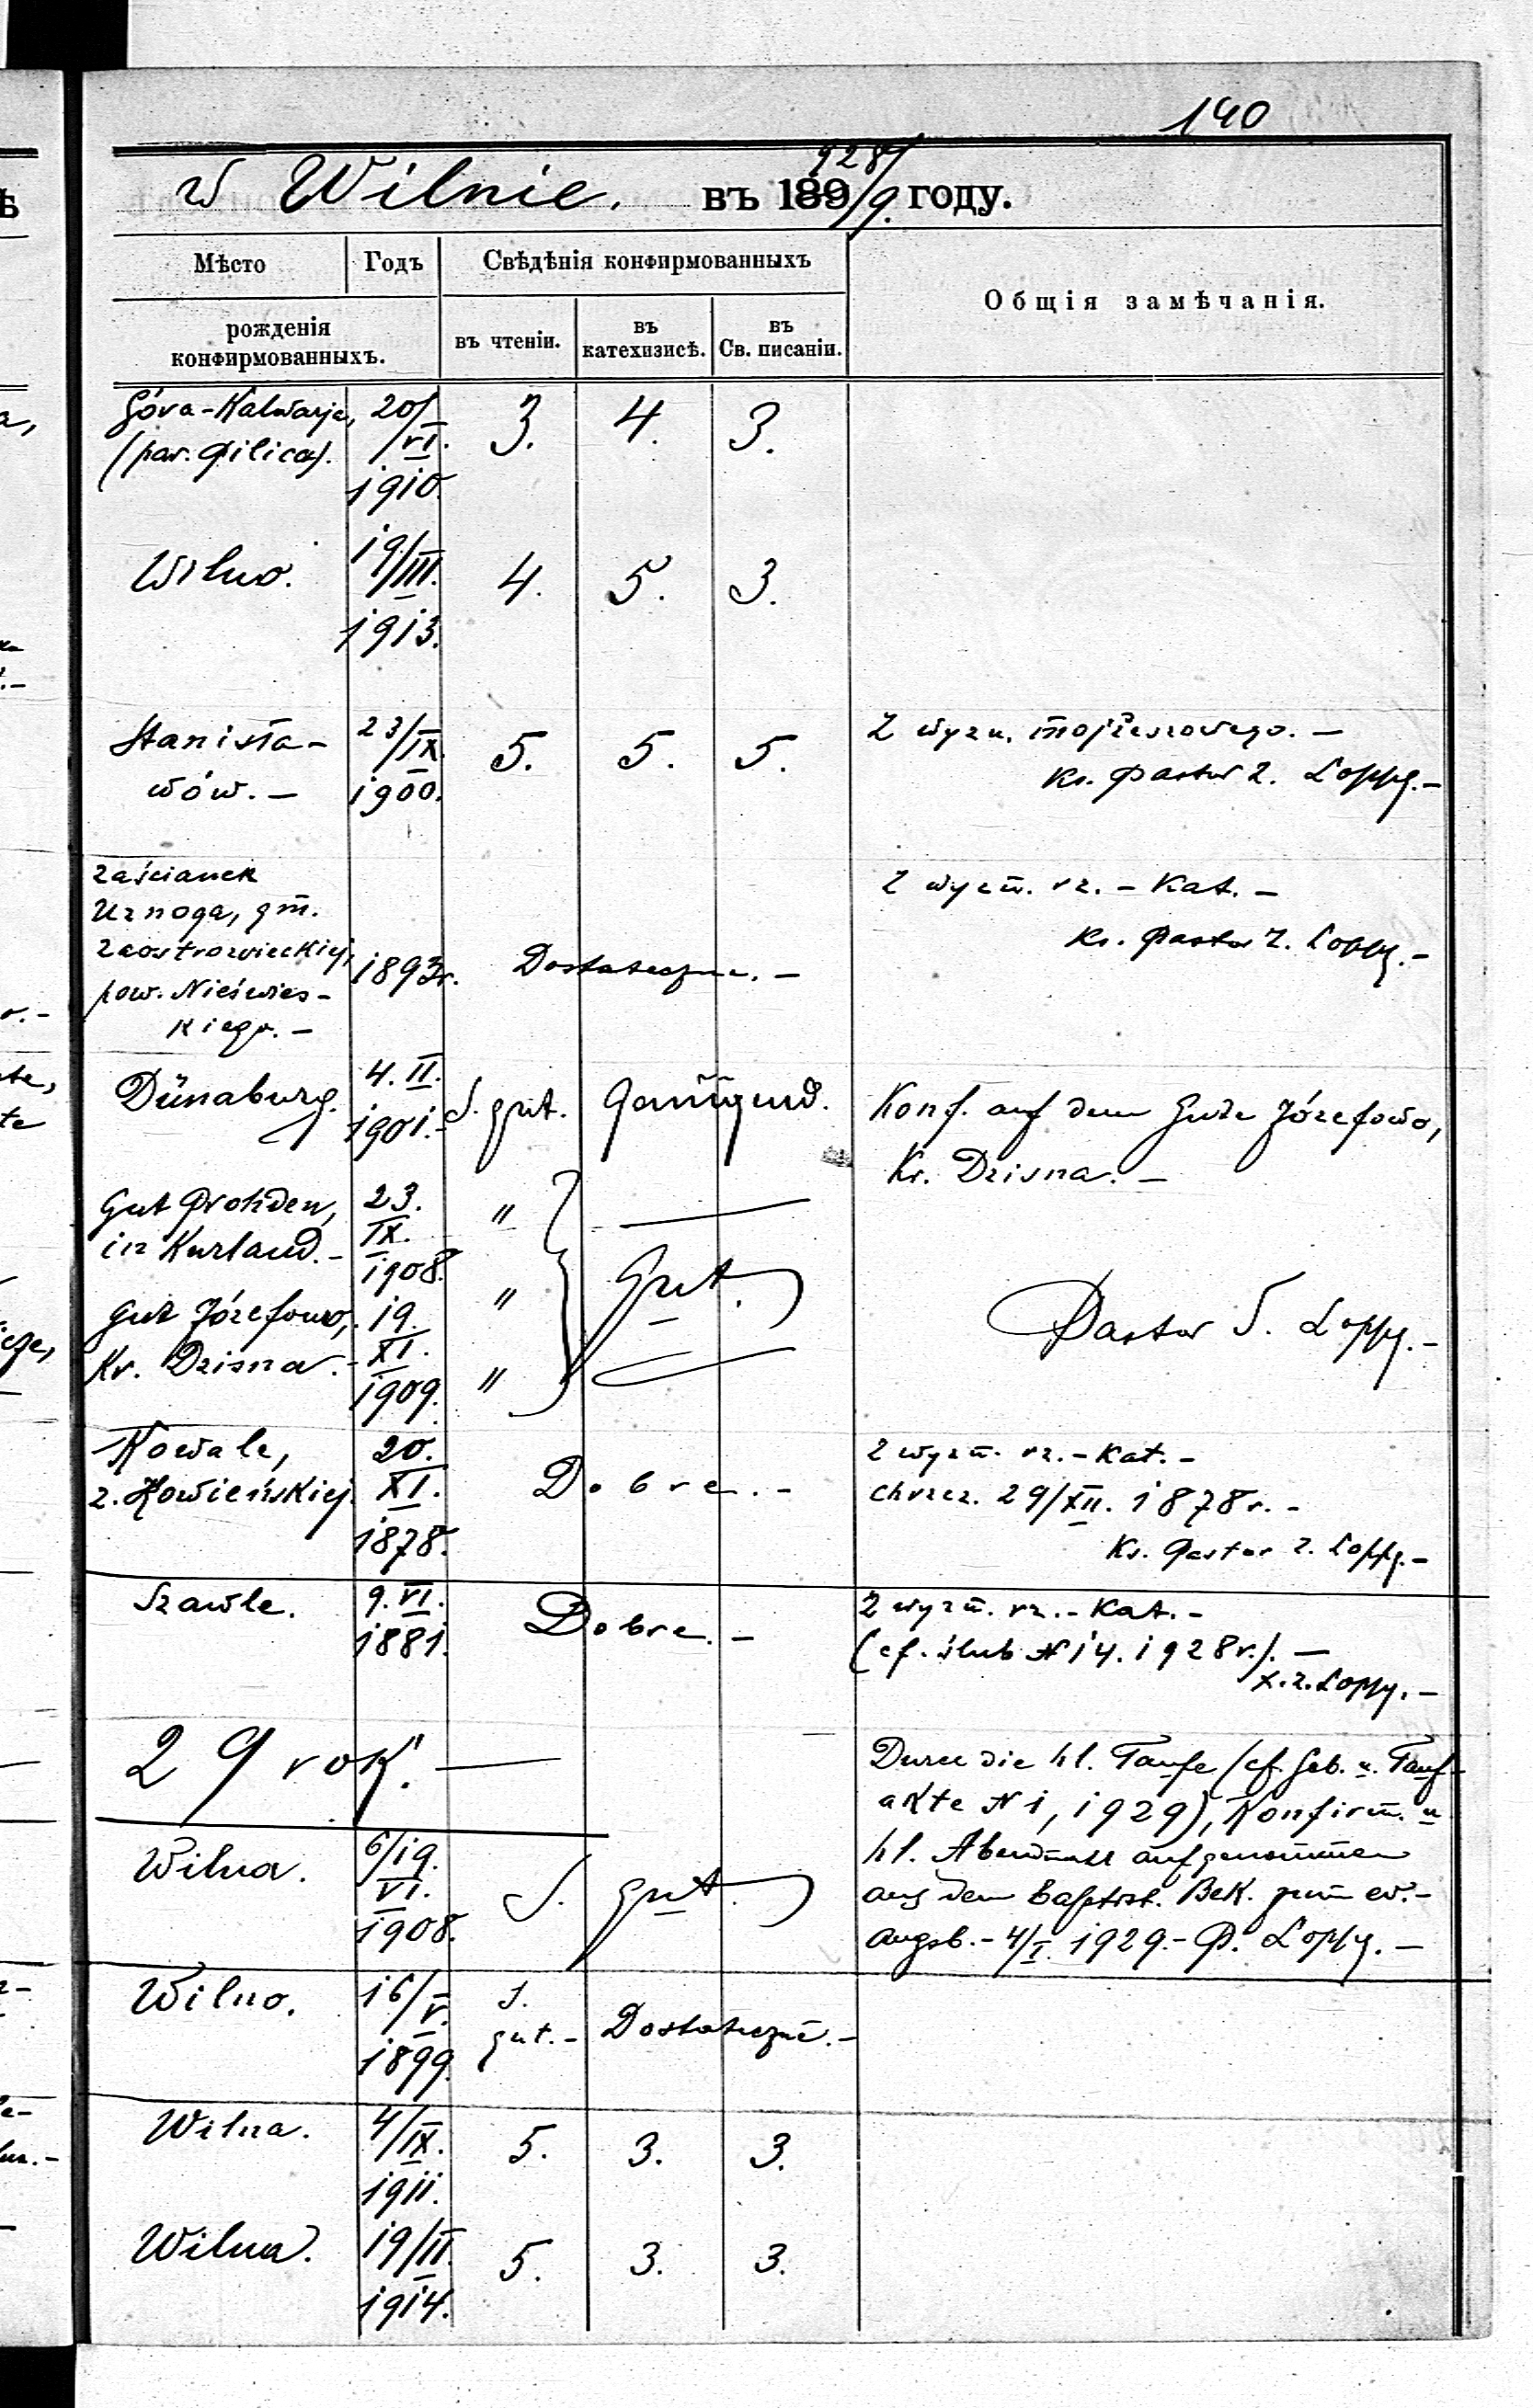 140
w Wilnie. въ 189 928/9. году.
Мѣсто Годъ Свѣдѣнія конфирмованныхъ Общія замѣчанія.
рожденія
конфирмованныхъ.
въ чтеніи. въ катехизисѣ. въ Св. писаніи.
Góra-Kalwarja, 20/VI. 3. 4. 3.
(par. Pilica). 1910.
Wilno. 19/III. 4. 5. 3.
1913.
Stanisła- 23/IX. 5. 5. 5. Z wyzn. mojżeszowego. –
wów. – 1900. Ks. Pastor Z. Loppe. –
Zaścianek Z wyzn. rz. – Kat. –
Uznoga, gm. Ks. Pastor Z. Loppe. –
Zaostrowieckiej, 1893r. Dostateczne. –
pow. Nieświes-
kiego. –
Dünaburg. 4. II. S. gut. Genügend. Konf. auf dem Gute Józefowo,
1901. – Kr. Dzisna. –
Gut Prohden, 23. "
in Kurland. – IX.
1908. Gut.
Gut Józefowo, 19. " Pastor S. Loppe. –
Kr. Dzisna. – XI.
1909. "
Kowale, 20. Dobre. – Z wyzn. rz. – Kat. –
z. Kowieńskiej. XI. chrzcz. 29/XII. 1878r. –
1878. Ks. Pastor Z. Loppe. –
Szawle. 9. VI. Dobre. – Z wyzn. rz. – Kat. –
1881. (cf. ślub N 14. 1928r.). –
X. Z. Loppe. –
29 rok! — Durch die hl. Taufe (cf. Geb. u. Tauf-
akte N 1, 1929), Konfirm. u
Wilna. 6/19. S. gut. hl. Abendmahl aufgenommen
VI. aus dem baptist. Bek. zum ev. –
1908. augsb. – 4/I. 1929. – P. Loppe. –
Wilno. 16/V. S. Dostateczne. –
1899. gut. –
Wilna. 4/IX. 5. 3. 3.
1911.
Wilna. 19/II. 5. 3. 3.
1914.